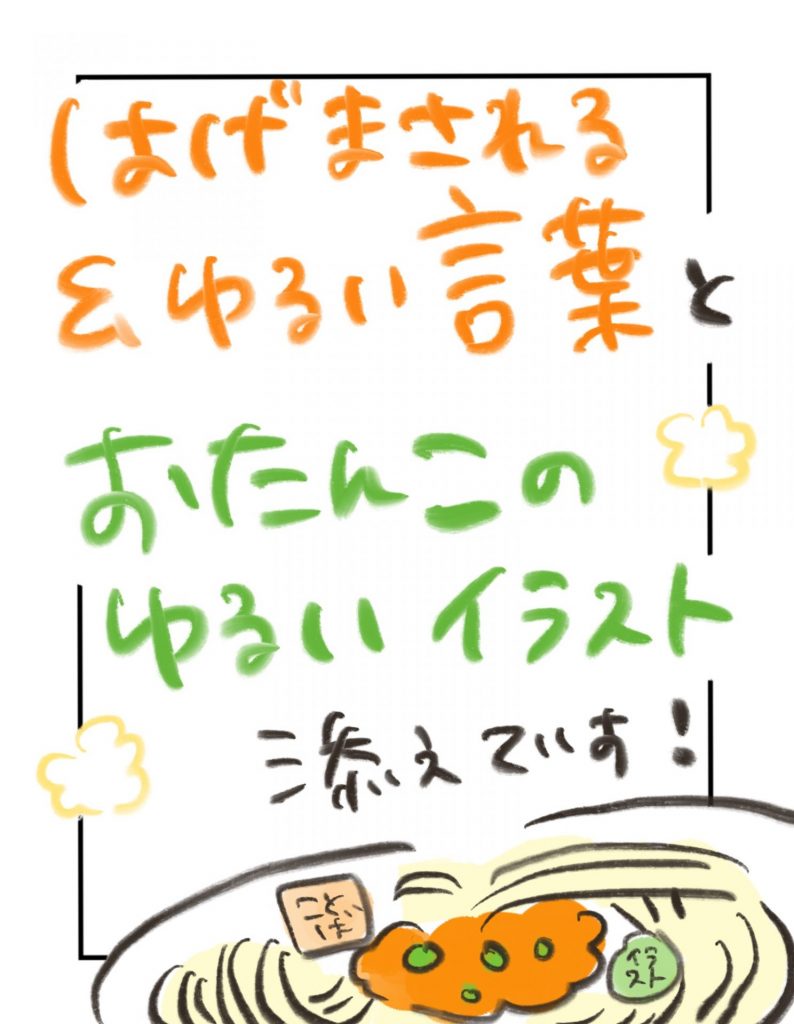 はげまされる
&ゆるい言葉と
おたんこの
ゆるいイラスト
添えです!
ことば
イラスト